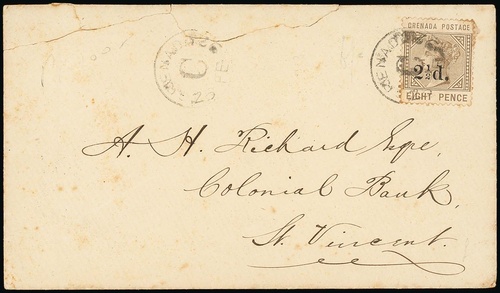 GRENADA POSTAGE
2½d.
EIGHT PENCE
C
A. H. Richard Esqre,
Colonial Bank,
St. Vincent.